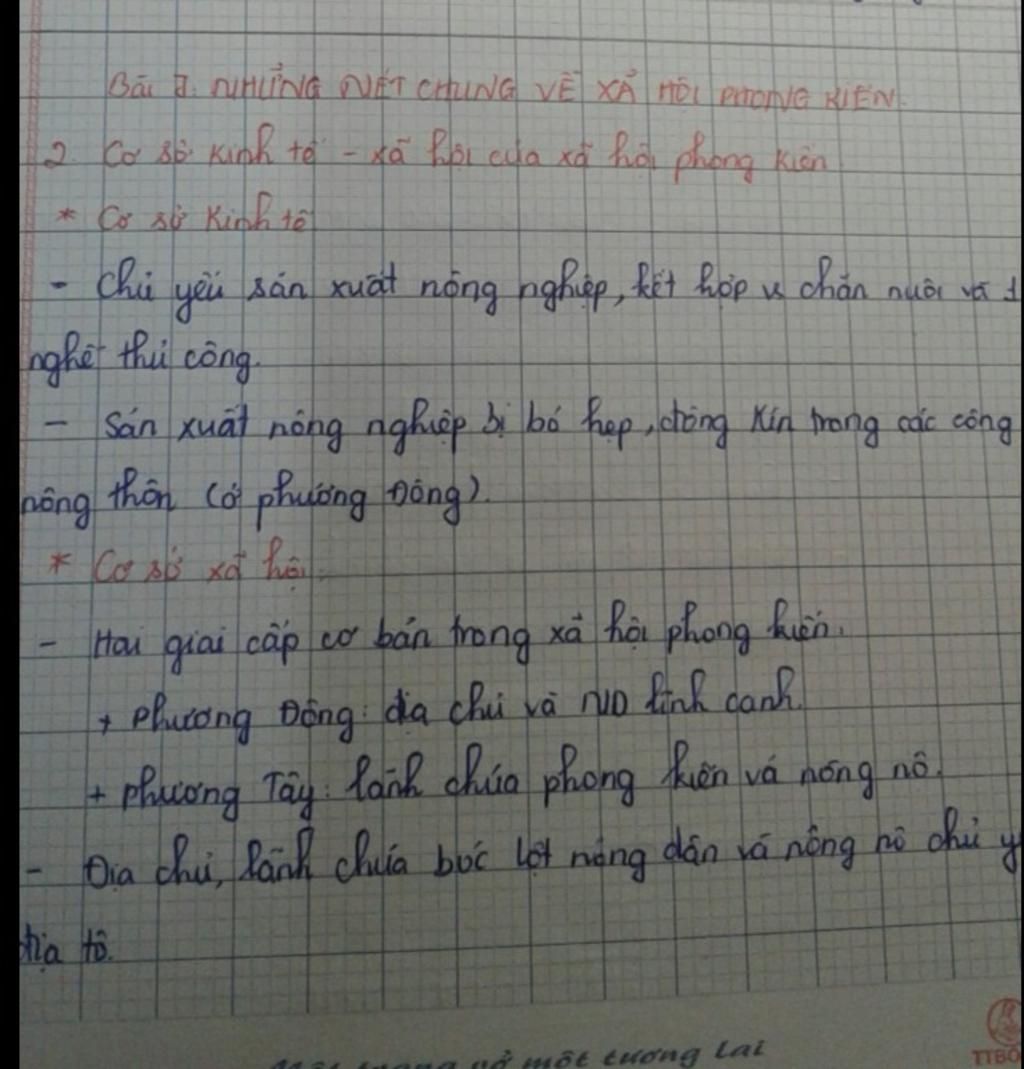 Bài 7. NHỮNG NÉT CHUNG VỀ XÃ HỘI PHONG KIẾN
2. Cơ sở kinh tế - xã hội của xã hội phong kiến
* Cơ sở Kinh tế
- Chủ yếu sản xuất nông nghiệp, kết hợp vs chăn nuôi và 1
nghề thủ công.
- Sản xuất nông nghiệp bị bó hẹp, đóng kín trong các công
nông thôn (ở phương Đông).
* Cơ sở xã hội.
- Hai giai cấp cơ bản trong xã hội phong kiến.
+ Phương Đông: địa chủ và ND lĩnh canh.
+ Phương Tây: lãnh chúa phong kiến và nông nô.
- Địa chủ, lãnh chúa bóc lột nông dân và nông nô chủ y
địa tô.
một tương lai
TTBO